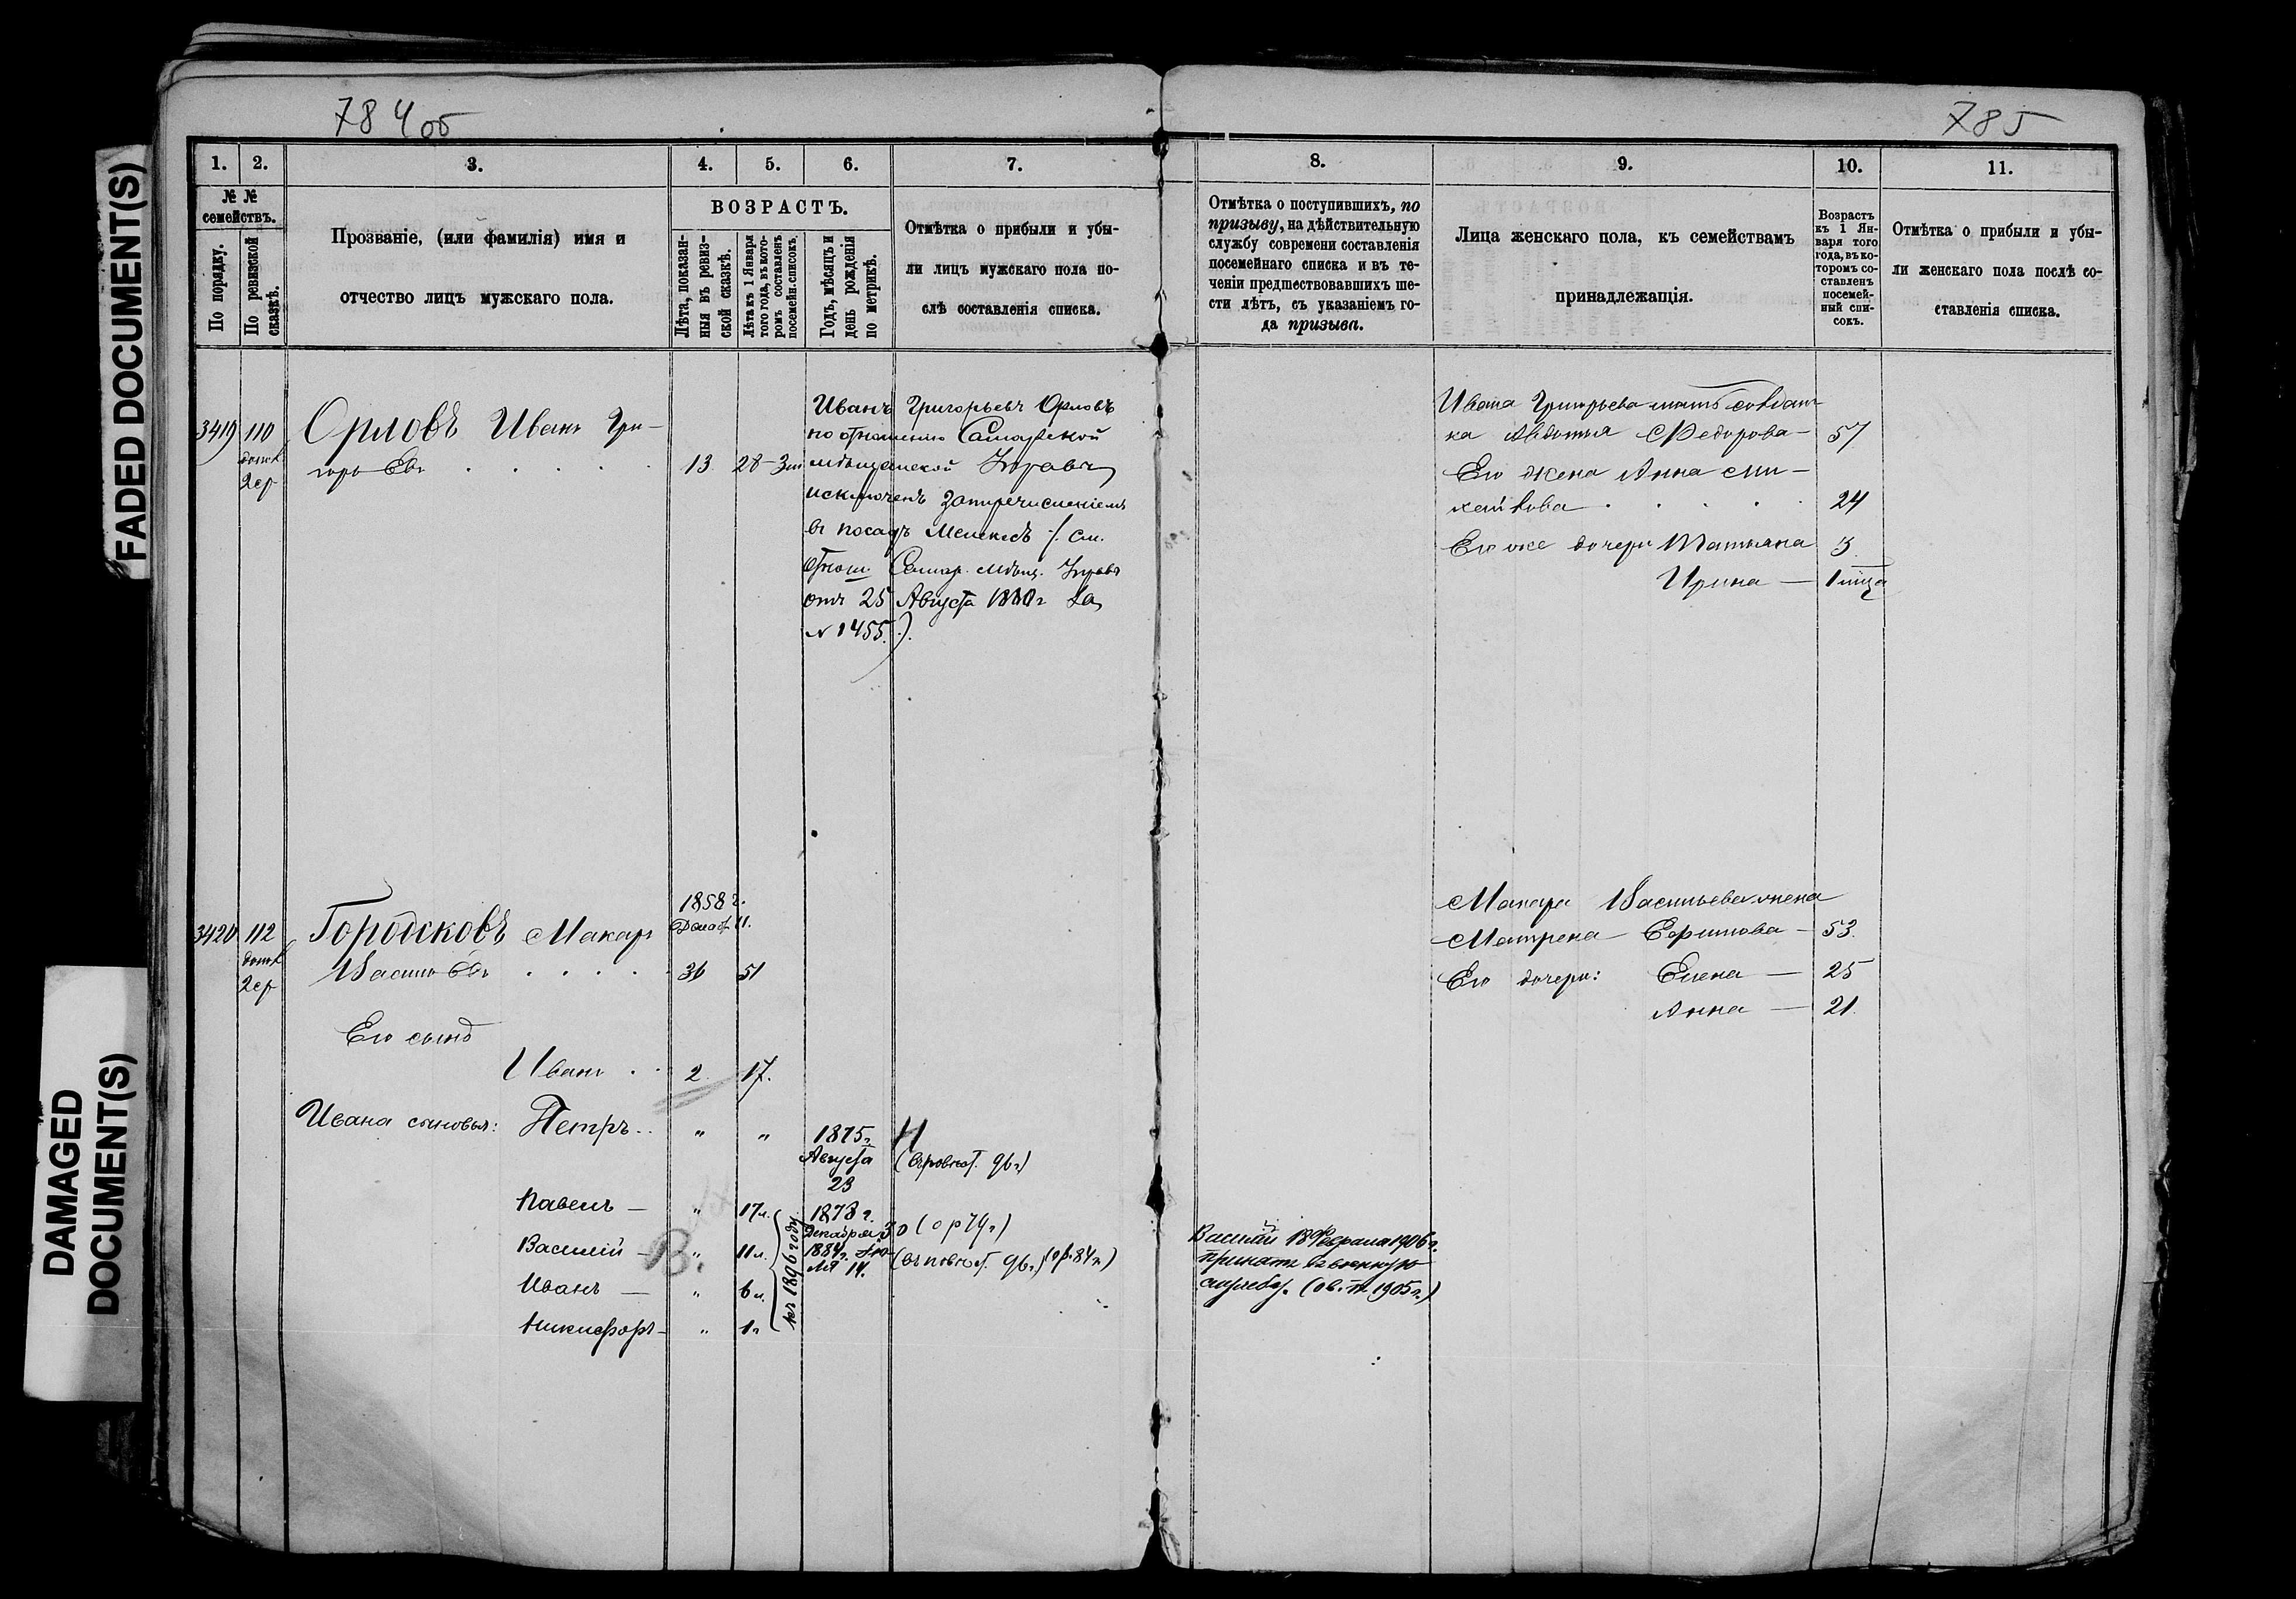 784 об
785
FADED DOCUMENT(S)
DAMAGED
DOCUMENT(S)
1.
2.
3.
4.
5.
6.
7.
8.
9.
10.
11.
№ №
семействъ.
По порядку.
По ревизской
сказкѣ.
Прозваніе, (или фамилія) имя и
отчество лицъ мужскаго пола.
ВОЗРАСТЪ.
Лѣта, показан-
ныя въ ревиз-
ской сказкѣ.
Лѣта къ 1 Января
того года, въ кото-
ромъ составленъ
посемейн. списокъ.
Годъ, мѣсяцъ и
день рожденія
по метрикѣ.
Отмѣтка о прибыли и убы-
ли лицъ мужскаго пола по-
слѣ составленія списка.
Отмѣтка о поступившихъ, по
призыву, на дѣйствительную
службу современи составленія
посемейнаго списка и въ те-
ченіи предшествовавшихъ ше-
сти лѣтъ, съ указаніемъ го-
да призыва.
Лица женскаго пола, къ семействамъ
принадлежащія.
Возрастъ
къ 1 Ян-
варя того
года, въ ко-
торомъ со-
ставленъ
посемей-
ный спи-
сокъ.
Отмѣтка о прибыли и убы-
ли женскаго пола послѣ со-
ставленія списка.
3419 110
Орловъ Иванъ Гри-
горьевъ 13 28
2 ср
Иванъ Григорьевъ Орловъ
по отношенію Самарской
мѣщанской Управы
исключенъ за перечисленіемъ
въ посадъ Мелекесъ /. см.
отнош. Самар. мѣщ. Управы
отъ 25 Августа за
№ 1455.).
Ивана Григорьева мать солдат-
ка Авдотья Федорова 57
Его жена Анна Ми-
хайлова 24
Его же дочери Татьяна 3
Ирина — 1 мца
3420 112
2 ср
Городсковъ Макаръ
Васильевъ
1858 г.
36 51
Его сынъ
Иванъ 2 17.
Ивана сыновья: Петръ " "
1875 г.
Августа
23
Н
Павелъ — " 17 л.
1878 г.
Декабря 3
о (ор 74 г)
Василій — " 11 л.
1884 г.
14.
Иванъ — " 6 л.
Никифоръ — " 1 г
къ 1896 году
В.
Василій 18 Февраля 1906 г.
принятъ въ военную
службу. 1905 г.)
Макара Васильева жена
Матрена Ефимова — 53.
Его дочери: Елена — 25
Анна — 21.